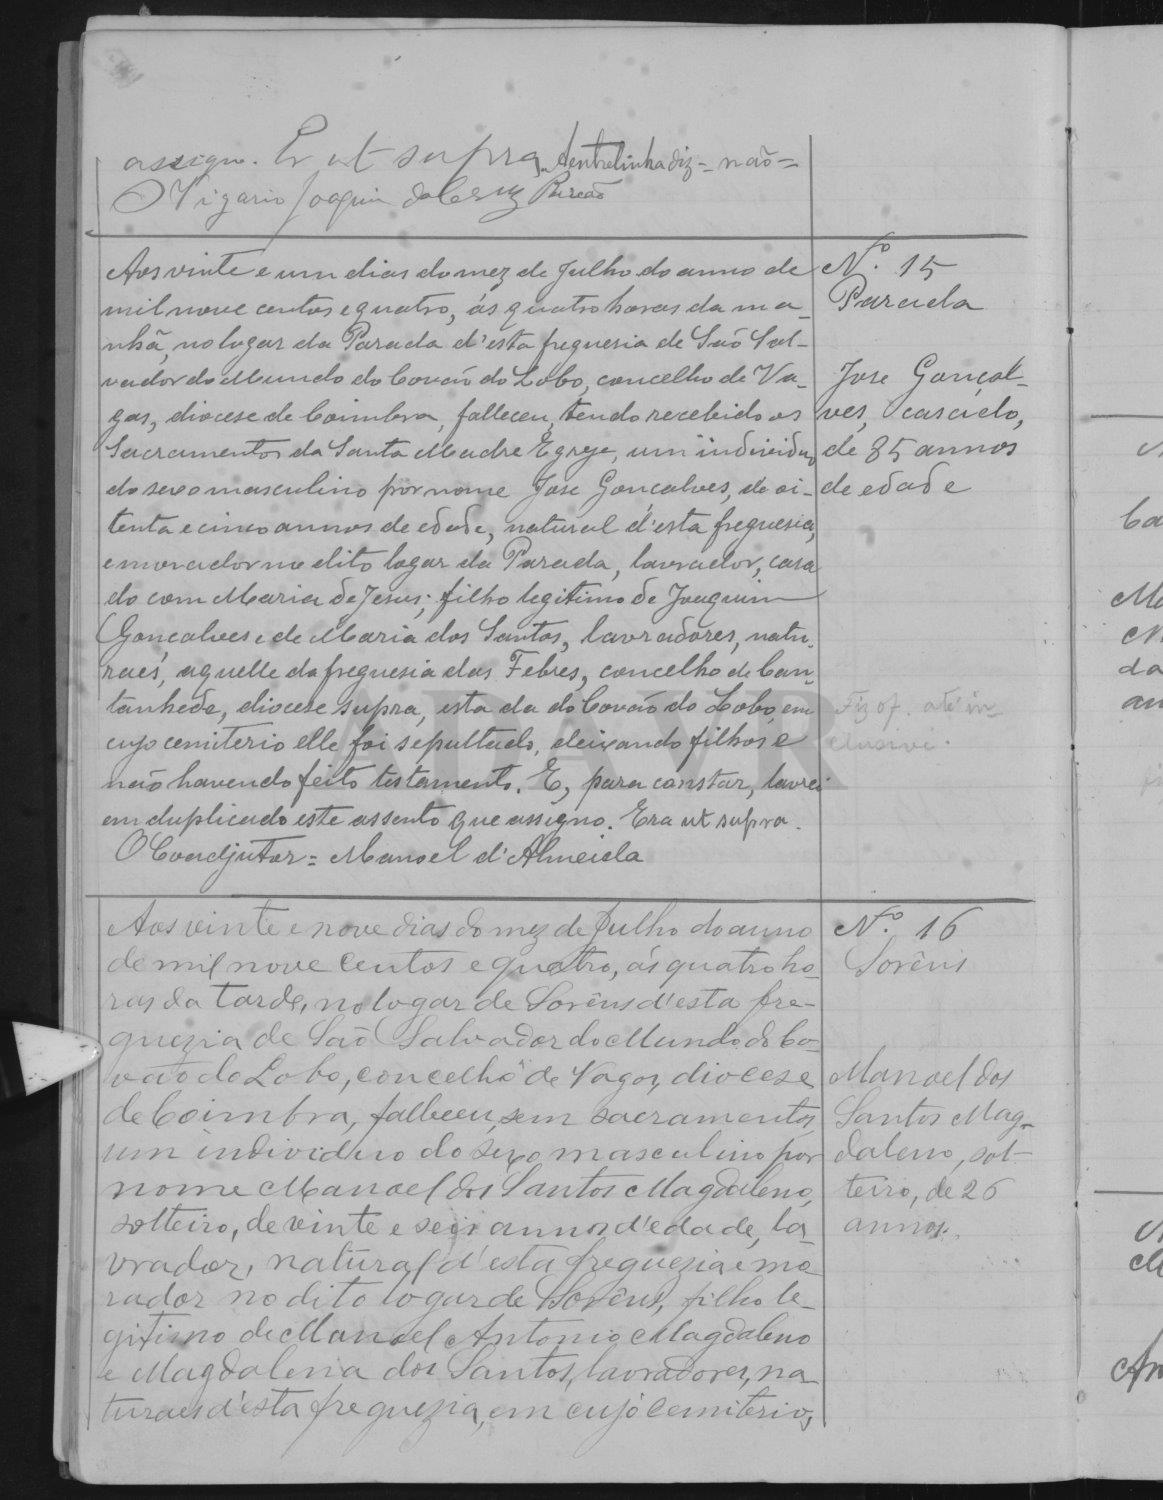 assigno. Er ut supra. A entrelinha diz = não =
O Vigario Joaquim da Cruz
Aos vinte e um dias do mez de Julho do anno de
mil nove centos e quatro, ás quatro horas da ma-
nhã, no logar da Parada d'esta freguesia de São Sal-
vador do Mundo do Covão do Lobo, concelho de Va-
gos, diocese de Coimbra, falleceu, tendo recebido os
Sacramentos da Santa Madre Egreja, um individuo
do sexo masculino por nome Jose Gonçalves, de oi-
tenta e cinco annos de edade, natural d'esta freguesia,
e morador no dito logar da Parada, lavrador, casa
do com Maria de Jesus; filho legitimo de Joaquim
Gonçalves e de Maria dos Santos, lavradores, natu-
raes, aquelle da freguesia das Febres, concelho de Can-
tanhede, diocese supra, esta da do Covão do Lobo, em
cujo cemiterio elle foi sepultado, deixando filhos e
não havendo feito testamento. E, para constar, lavrei
em duplicado este assento que assigno. Era ut supra.
O Coadjutor = Manoel d'Almeida
Nº. 15
Parada
Jose Gonçal-
ves, casado,
de 85 annos
de edade
Fiz of. até in-
clusivi.
ADAVR
Aos vinte e nove dias do mez de Julho do anno
de mil nove centos e quatro, ás quatro ho-
ras da tarde, no logar de Sorêns d'esta fre-
guezia de São Salvador do Mundo do Co-
vão do Lobo, concelho de Vagos, diocese
de Coimbra, falleceu, sem sacramentos,
um individuo do sexo masculino por
nome Manoel dos Santos Magdaleno,
solteiro, de vinte e seis annos d'edade, la-
vrador, natural d'esta freguezia e mo
rador no dito logar de Sorêns, filho le-
gitimo de Manoel Antonio Magdaleno
e Magdalena dos Santos, lavradores, na-
turaes d'esta freguezia, em cujo cemiterio,
Nº. 16
Sorêns
Manoel dos
Santos Mag-
daleno, sol-
teiro, de 26
annos.